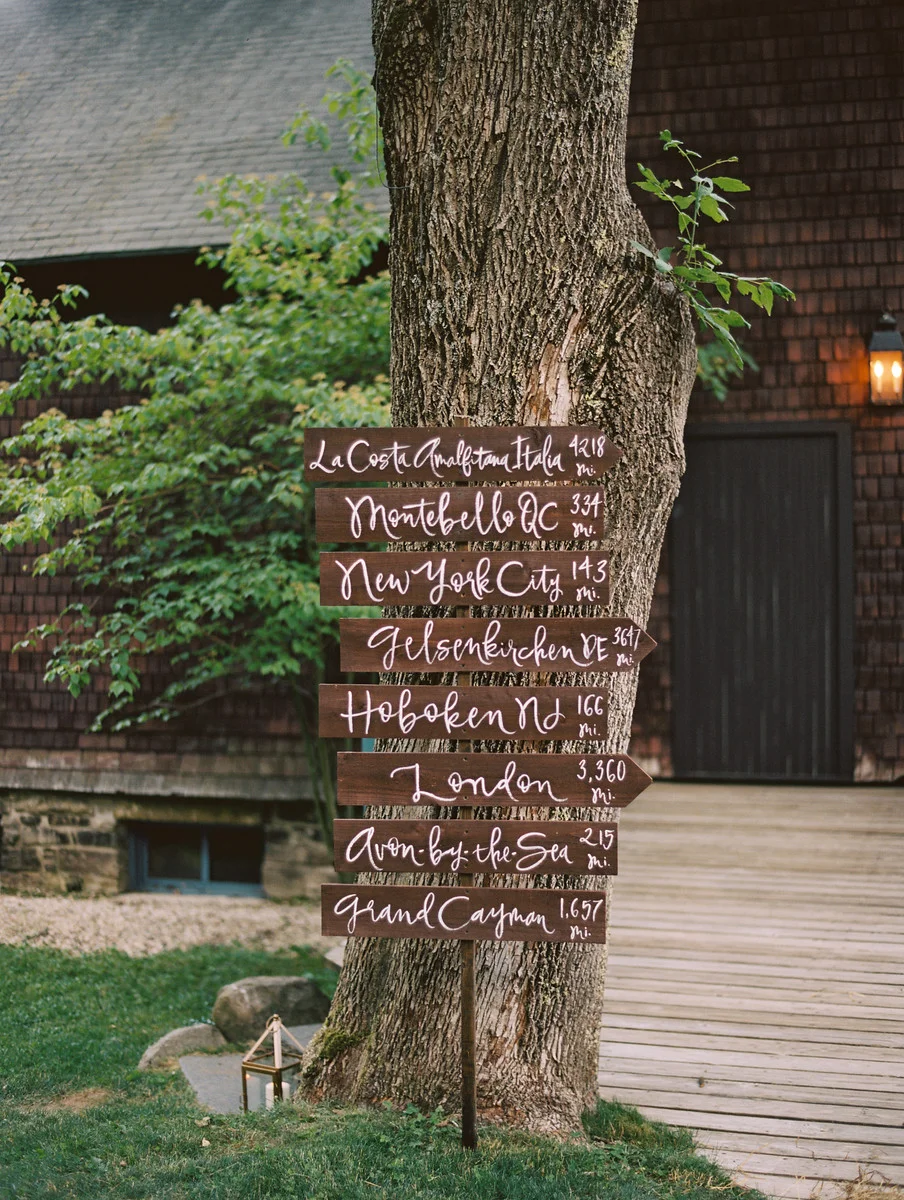 La Costa Amalfitana Italia 4218 mi.
Montebello QC 334 mi.
New York City 143 mi.
Gelsenkirchen DE 3647 mi.
Hoboken NJ 166 mi.
London 3,360 mi.
Avon-by-the-Sea 215 mi.
Grand Cayman 1,657 mi.